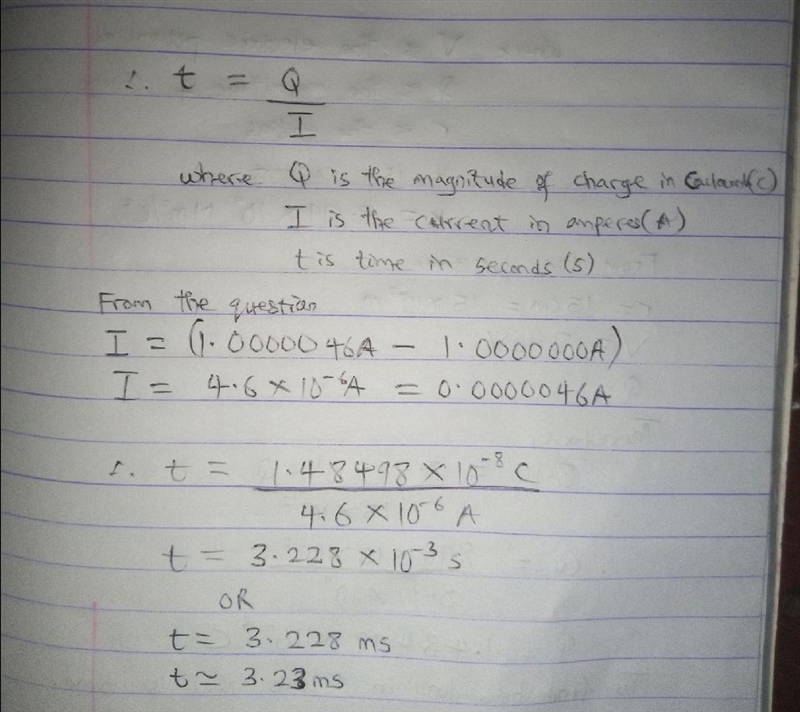 ∴ t = Q / I
where Q is the magnitude of charge in (C)
I is the current in amperes (A)
t is time in seconds (s)
From the question
I = (1.0000046A − 1.0000000A)
I = 4.6 × 10⁻⁶A = 0.0000046A
∴ t = 1.48498 × 10⁻⁸ C / 4.6 × 10⁻⁶ A
t = 3.228 × 10⁻³ s
OR
t = 3.228 ms
t ≃ 3.23 ms